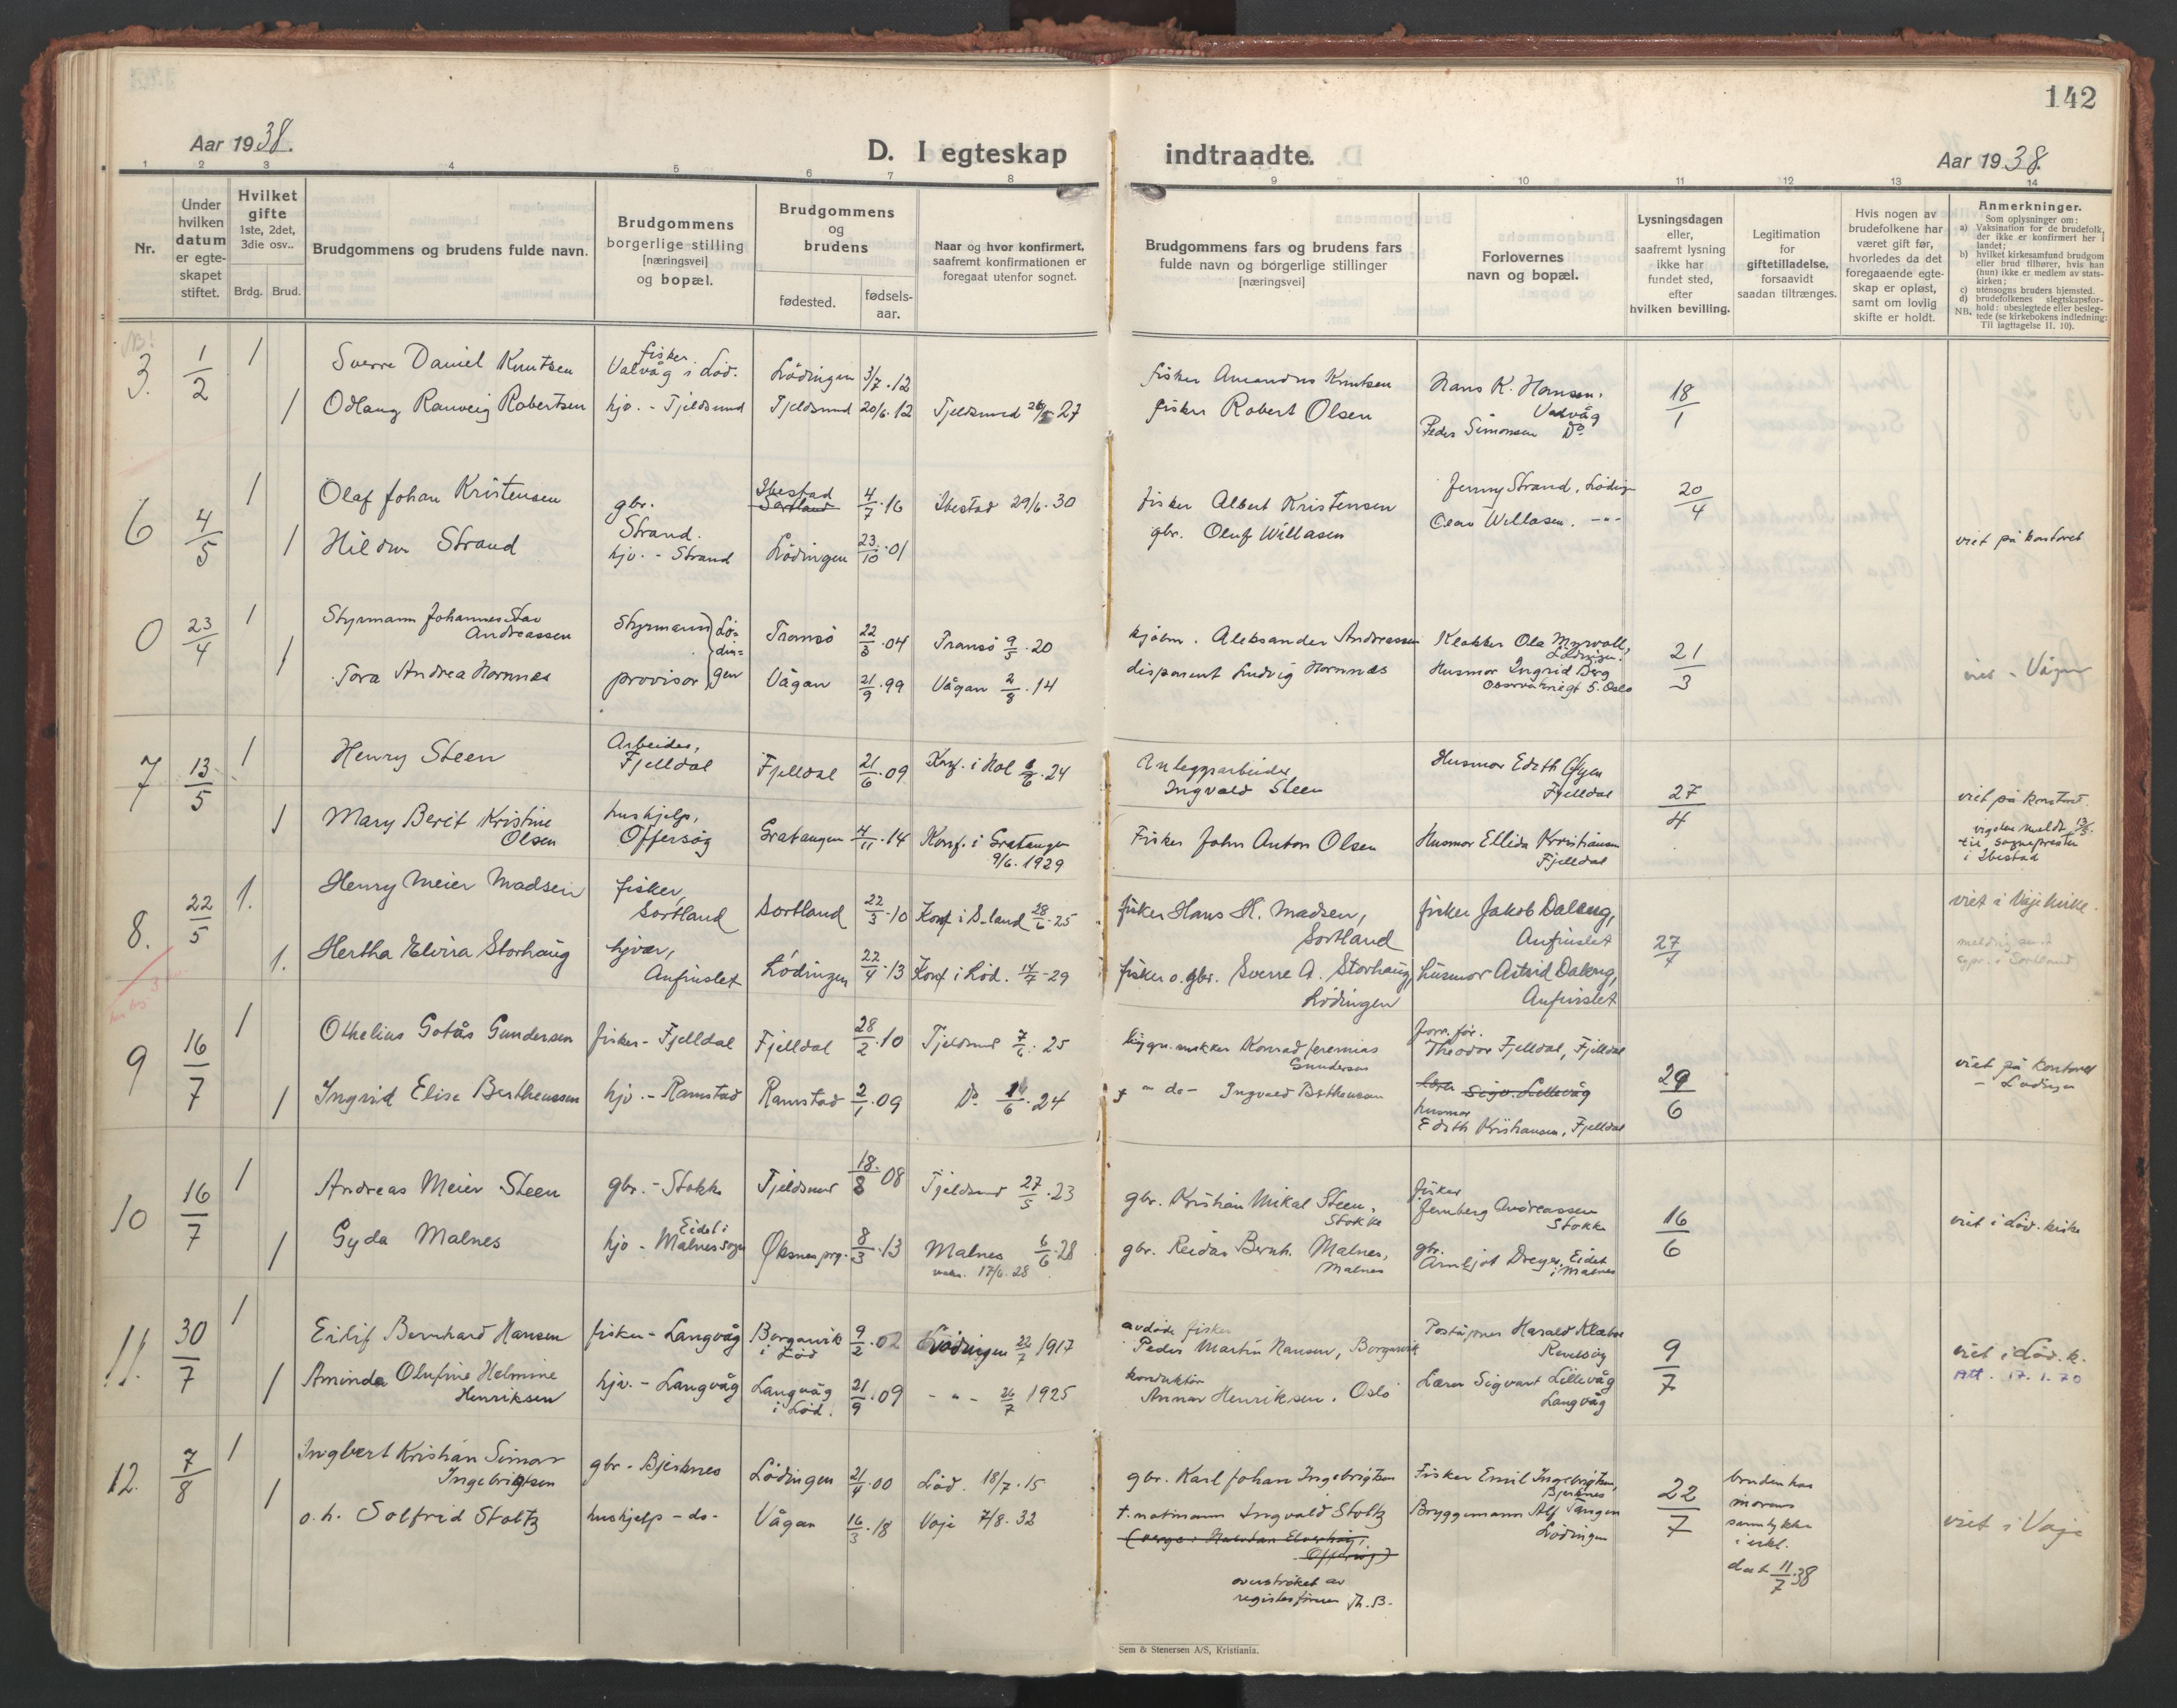 142
Aar 1938.
D. I egteskap indtraadte.
Aar 1938.
1 2 3 4 5 6 7 8 9 10 11 12 13 14
Nr.
Under hvilken datum er egte-skapet stiftet.
Hvilket gifte 1ste, 2det, 3die osv..
Brdg. Brud.
Brudgommens og brudens fulde navn.
Brudgommens borgerlige stilling [næringsvei] og bopæl.
Brudgommens og brudens
fødested. fødsels-aar.
Naar og hvor konfirmert, saafremt konfirmationen er foregaat utenfor sognet.
Brudgommens fars og brudens fars fulde navn og borgerlige stillinger [næringsvei]
Forlovernes navn og bopæl.
Lysningsdagen eller, saafremt lysning ikke har fundet sted, efter hvilken bevilling.
Legitimation for giftetilladelse, forsaavidt saadan tiltrænges.
Hvis nogen av brudefolkene har været gift før, hvorledes da det foregaaende egte-skap er opløst, samt om lovlig skifte er holdt.
Anmerkninger.
Som oplysninger om:
a) Vaksination for de brudefolk, der ikke er konfirmert her i landet;
b) hvilket kirkesamfund brudgom eller brud tilhører, hvis han (hun) ikke er medlem av stats-kirken;
c) utensogns bruders hjemsted.
d) brudefolkenes slegtskapsfor-hold: ubeslegtede eller besleg-tede (se kirkebokens indledning: Til iagttagelse II. 10).
NB.
NB!
3. 1/2 1 Sverre Daniel Knutsen fisker Valvåg i Lød. Lödingen 3/7.12 fisker Amandus Knutsen Hans K. Hansen, Valvåg 18/1
1 Odlaug Ranveig Robertsen hjv. - Tjeldsund Tjeldsund 20/6.12 Tjeldsund 27 fisker Robert Olsen Peder Simonsen Do
6 4/5 1 Olaf Johan Kristensen gbr. Strand. Ibestad Sortland 4/7.16 Ibestad 29/6.30 fisker Albert Kristensen Jenny Strand, Lödingen 20/4
1 Hildur Strand hjv. - Strand Lödingen 23/10.01 gbr. Oluf Willasen Willasen. -"- viet på kontoret
0 23/4 1 Styrmann Johannes Andreassen Styrmann Lö-din-gen Tromsö 22/3.04 Tromsö 9/5.20 kjøbm. Aleksander Andreassen Klokker Ola Myrvoll, Lödingen 21/3
1 Tora Andrea Hornnes provisor Vågan 21/9.99 Vågan 2/8.14 disponent Ludvig Hornnes Husmor Ingrid Berg Observatoriegt 5. Oslo viet - Vågan
7 13/5 1 Henry Steen Arbeider, Fjelldal Fjelldal 21/6.09 Konf. i Hol 24 Anleggsarbeider Ingvald Steen Husmor Edith Fjelldal 27/4
1 Mary Berit Kristine Olsen hushjelp, Offersøy Gratangen 4/11.14 Konf. i Gratangen 9/6.1929 Fisker John Anton Olsen Husmor Ellida Kristiansen Fjelldal viet på kontoret.
vigslen meldt 13/5. til sognepresten i Ibestad
8. 22/5 1. Henry Meier Madsen fisker, Sortland Sortland 22/3-10 Konf i S-land 28/6-25 fisker Hans H. Madsen, Sortland fisker Jakob Daleng, Aufinslet 27/4 viet i Vaje kirke.
1. Hertha Elvira Storhaug hjvær, Aufinslet Lödingen 22/4-13 Konf i Lød. 14/7-29 fisker o. gbr. Sverre A. Storhaug, Lödingen husmor Astrid Daleng, Aufinslet
9 16/7 1 Othelius Gotås Gundersen fisker - Fjelldal Fjelldal 28/2.10 Tjeldsund 7/6.25 Konrad Jeremias Gundersen Theodor Fjelldal, Fjelldal 29/6 viet på kontoret - Lödingen
1 Ingrid Elise Bertheussen hjv. - Ramstad Ramstad 2/1.09 Do 14/6.24 - do - Ingvald Bertheussen lærer Sigv. Lillevåg
husmor Edith Kristiansen, Fjelldal
10 16/7 1 Andreas Meier Steen gbr. - Stokke Tjeldsund 18/8.08 Tjeldsund 27/5.23 gbr. Kristian Mikal Steen, Stokke fisker Jernberg Andreassen Stokke 16/6 viet i Lød. kirke
1 Gyda Malnes hjv - Eidet i Malnes sogn Øksnes prg. 8/3.13 Malnes 6/6.28 vaks. 17/6.28 gbr. Reidar Bernh. Malnes, Malnes gbr. Arnljot Dreyer, Eidet i Malnes
11. 30/7 1 Eilif Bernhard Hansen fisker - Langvåg Borgarvik i Lød 9/2.02 Lödingen 22/7 1917 avdøde fisker Peder Martin Hansen, Borgarvik Poståpner Harald Klæboe Revelsøy 9/7 viet i Lød. k.
1 Aminda Olufine Helmine Henriksen hjv. - Langvåg Langvåg i Lød. 21/9.09 - " - 26/7 1925 konduktör Annar Henriksen, Oslo Lærer Sigvart Lillevåg Langvåg Att. 17.1.70
12. 7/8 1 Ingbert Kristian Simon Ingebrigtsen gbr - Bjerknes Lödingen 21/4.00 Lød. 18/7.15 gbr. Karl Johan Ingebrigtsen Fisker Emil Ingebrigtsen, Bjerknes 22/7 bruden har morens samtykke i erkl. dat 11/7.38
1 o.h. Solfrid Stoltz hushjelp - do- Vågan 16/3.18 Vaje 7/8.32 Ingvald Stoltz Bryggemann Alf Tangen Lödingen viet i Vaje
overstrøket av registerfører Th. B.
Sem & Stenersen A/S, Kristiania.